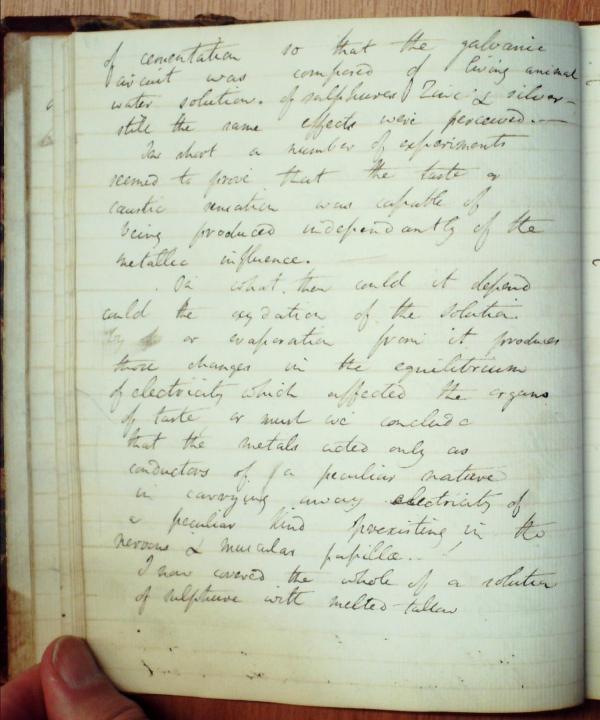 of cementation so that the galvanic
circuit was composed of living animal
water solution. of sulphures Zinc & silver –
still the same effects were perceived. —
In short a number of experiments
seemed to prove that the taste or
caustic sensation was capable of
being produced independantly of the
metallic influence.
On what then could it depend
could the oxydation of the solution.
or evaporation from it produces
those changes in the equilibrium
of electricity which affected the organs
of taste or must we conclude
that the metals acted only as
conductors of a peculiar nature
in carrying away electricity of
a peculiar kind preexisting in the
nervous & muscular papillæ..
I now covered the whole of a solution
of sulphure with melted tallow